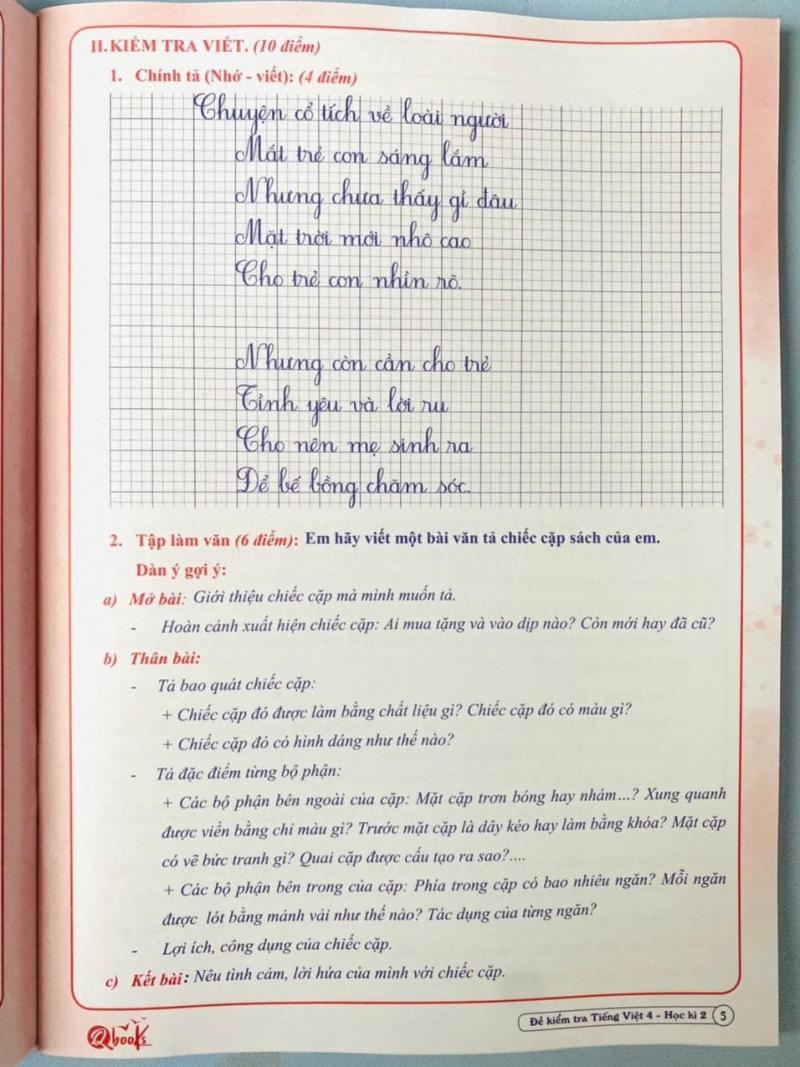 II. KIỂM TRA VIẾT. (10 điểm)
1. Chính tả (Nhớ - viết): (4 điểm)
Chuyện cổ tích về loài người
Mắt trẻ con sáng lắm
Nhưng chưa thấy gì đâu
Mặt trời mới nhô cao
Cho trẻ con nhìn rõ.
Nhưng còn cần cho trẻ
Tình yêu và lời ru
Cho nên mẹ sinh ra
Để bế bồng chăm sóc.
2. Tập làm văn (6 điểm): Em hãy viết một bài văn tả chiếc cặp sách của em.
Dàn ý gợi ý:
a) Mở bài: Giới thiệu chiếc cặp mà mình muốn tả.
- Hoàn cảnh xuất hiện chiếc cặp: Ai mua tặng và vào dịp nào? Còn mới hay đã cũ?
b) Thân bài:
- Tả bao quát chiếc cặp:
+ Chiếc cặp đó được làm bằng chất liệu gì? Chiếc cặp đó có màu gì?
+ Chiếc cặp đó có hình dáng như thế nào?
- Tả đặc điểm từng bộ phận:
+ Các bộ phận bên ngoài của cặp: Mặt cặp trơn bóng hay nhám...? Xung quanh
được viền bằng chỉ màu gì? Trước mặt cặp là dây kéo hay làm bằng khóa? Mặt cặp
có vẽ bức tranh gì? Quai cặp được cấu tạo ra sao?....
+ Các bộ phận bên trong của cặp: Phía trong cặp có bao nhiêu ngăn? Mỗi ngăn
được lót bằng mảnh vải như thế nào? Tác dụng của từng ngăn?
- Lợi ích, công dụng của chiếc cặp.
c) Kết bài: Nêu tình cảm, lời hứa của mình với chiếc cặp.
Đề kiểm tra Tiếng Việt 4 - Học kì 2 5
Qbooks